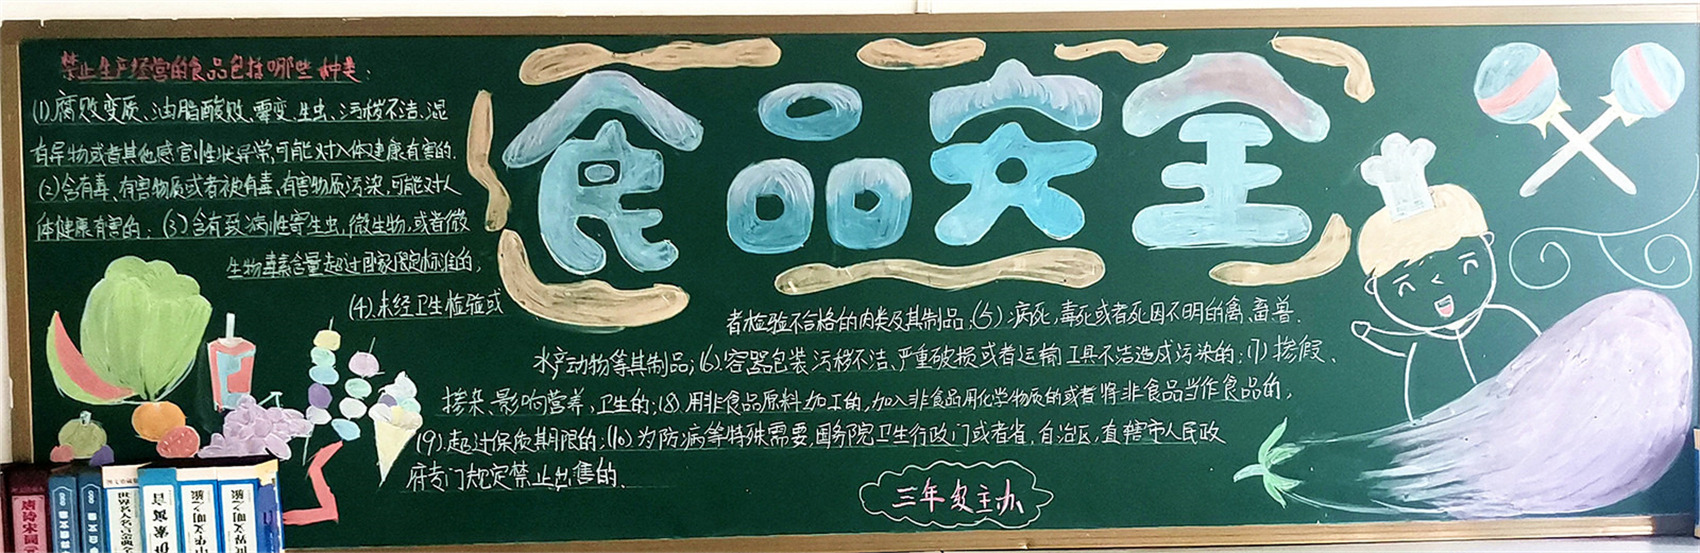 食品安全
禁止生产经营的食品包括哪些种类:
(1).腐败变质、油脂酸败、霉变、生虫、污秽不洁、混
有异物或者其他感官性状异常,可能对人体健康有害的.
(2)含有毒、有害物质或者被有毒、有害物质污染,可能对人
体健康有害的;(3)含有致病性寄生虫,微生物,或者微
生物毒素含量超过国家限定标准的;
(4).未经卫生检验或
者检验不合格的肉类及其制品;(5):病死,毒死或者死因不明的禽、畜、兽.
水产动物等其制品;(6).容器包装污秽不洁、严重破损或者运输工具不洁造成污染的;(7)掺假、
掺杂、影响营养,卫生的;(8).用非食品原料加工的,加入非食品用化学物质的或者将非食品当作食品的,
(9).超过保质期限的;(10)为防病等特殊需要,国务院卫生行政门或者省,自治区,直辖市人民政
府专门规定禁止出售的.
三年级主办
唐诗宋词元
世界名人名言金典